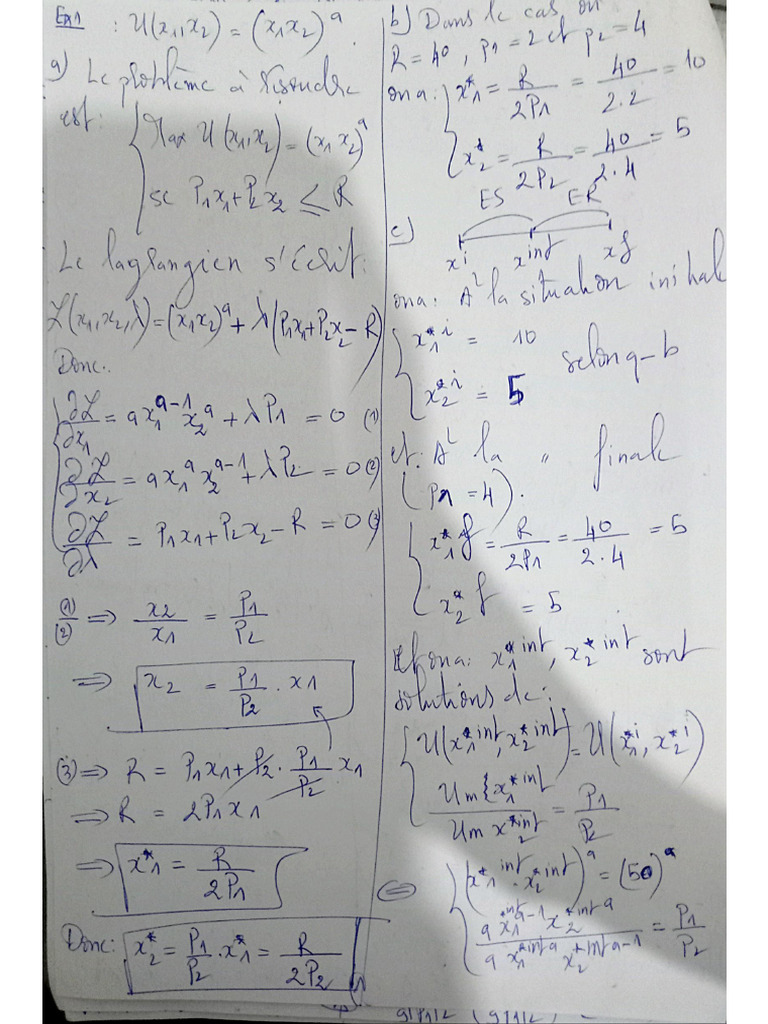 Ex1 : U(x1,x2) = (x1x2)^a.
a) Le problème à résoudre
est: { Max U(x1,x2) = (x1x2)^a
sc P1x1+P2x2 ≤ R
Le lagrangien s'écrit:
L(x1,x2,λ) = (x1x2)^a + λ(P1x1+P2x2-R)
Donc:
∂L/∂x1 = a x1^a-1 x2^a + λP1 = 0 (1)
∂L/∂x2 = a x1^a x2^a-1 + λP2 = 0 (2)
∂L/∂λ = P1x1+P2x2-R = 0 (3)
(1)/(2) ⇒ x2/x1 = P1/P2
⇒ x2 = P1/P2 . x1
(3) ⇒ R = P1x1 + P2 . P1/P2 x1
⇒ R = 2P1x1
⇒ x1* = R/2P1
Donc: x2* = P1/P2 . x1* = R/2P2
b) Dans le cas où
R = 40, P1 = 2 et P2 = 4
ona: { x1* = R/2P1 = 40/2.2 = 10
x2* = R/2P2 = 40/2.4 = 5
c) ES ER
xi xint xf
ona: A la situation initiale
{ x1*i = 10 selon q-b
x2*i = 5
et: A la " finale
(P1 = 4).
{ x1*f = R/2P1 = 40/2.4 = 5
x2*f = 5
Et ona: x1*int, x2*int sont
solutions de:
{ U(x1*int, x2*int) = U(x1*i, x2*i)
Um x1*int / Um x2*int = P1/P2
⇔ { (x1*int . x2*int)^a = (50)^a
a x1*int a-1 x2*int a / a x1*int a x2*int a-1 = P1/P2